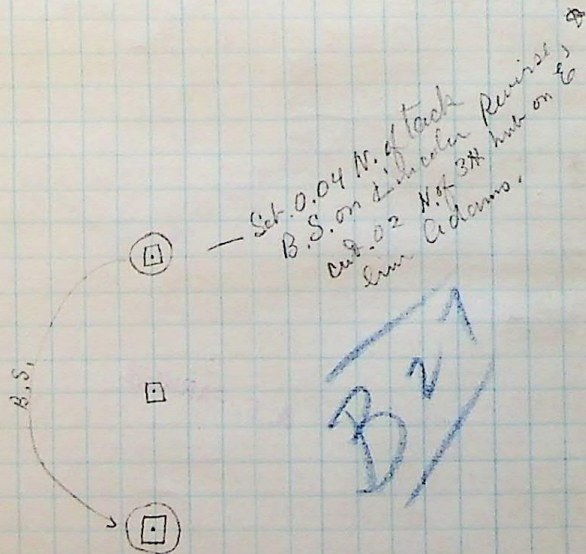 Set. 0.04 N. of tack
B.S. on Lincoln Reverse,
cut .02 N. of 3H hub on E's
line Adams.
B.S.
B 27